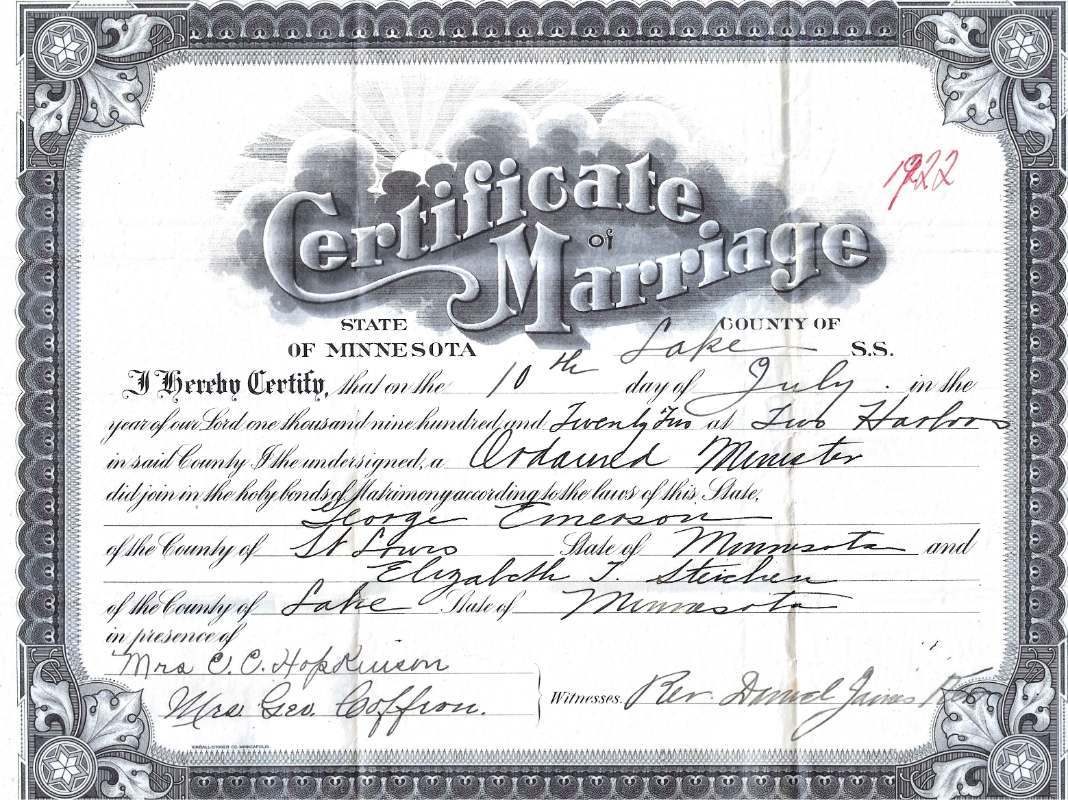 1922
Certificate
of
Marriage
STATE COUNTY OF
OF MINNESOTA Lake S.S.
I Hereby Certify, that on the 10th day of July. in the
year of our Lord one thousand nine hundred and Twenty Two at Two Harbors
in said County I the undersigned, a Ordained Minister
did join in the holy bonds of Matrimony according to the laws of this State,
George Emerson
of the County of St Louis State of Minnesota and
Elizabeth T. Steichen
of the County of Lake State of Minnesota
in presence of
Mrs C. C. Hopkinson
Mrs Geo. Coffron. Witnesses. Rev. Daniel James